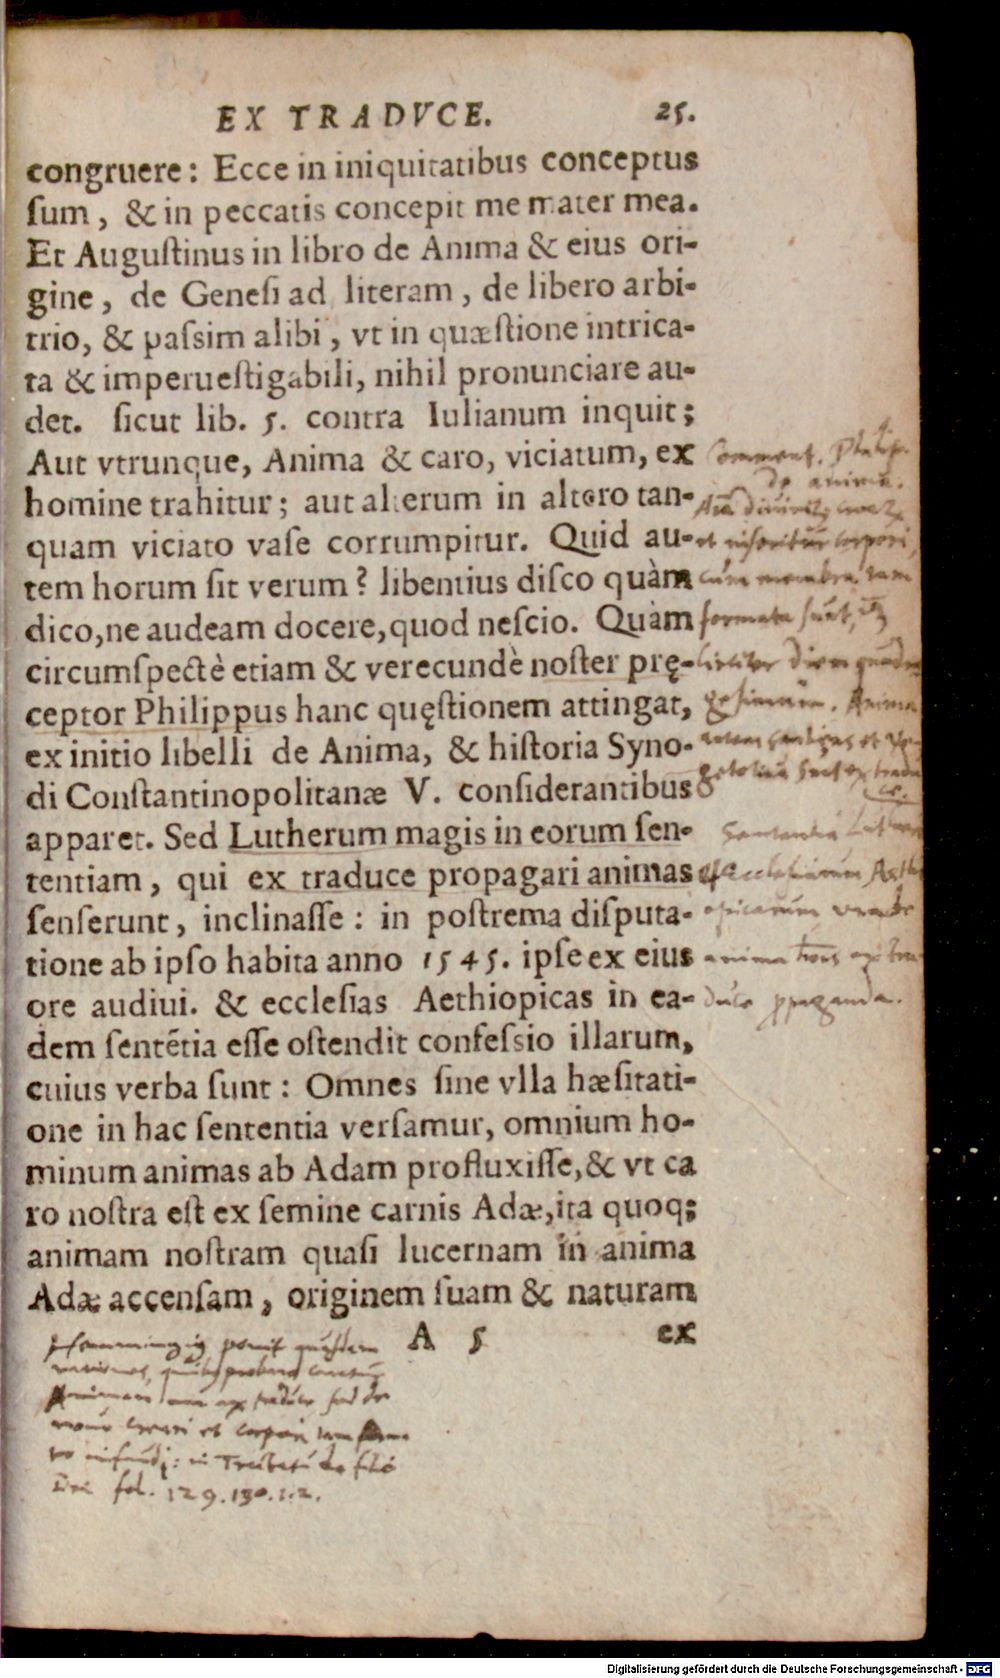 EX TRADVCE. 25.
congruere: Ecce in iniquitatibus conceptus
sum, & in peccatis concepit me mater mea.
Et Augustinus in libro de Anima & eius ori-
gine, de Genesi ad literam, de libero arbi-
trio, & passim alibi, vt in quæstione intrica-
ta & imperuestigabili, nihil pronunciare au-
det. sicut lib. 5. contra Iulianum inquit;
Aut vtrunque, Anima & caro, viciatum, ex
homine trahitur; aut alterum in altero tan-
quam viciato vase corrumpitur. Quid au-
tem horum sit verum? libentius disco quàm
dico, ne audeam docere, quod nescio. Quàm
circumspectè etiam & verecundè noster prę-
ceptor Philippus hanc quęstionem attingat,
ex initio libelli de Anima, & historia Syno-
di Constantinopolitanæ V. considerantibus
apparet. Sed Lutherum magis in eorum sen-
tentiam, qui ex traduce propagari animas
senserunt, inclinasse: in postrema disputa-
tione ab ipso habita anno 1545. ipse ex eius
ore audiui. & ecclesias Aethiopicas in ea-
dem sentẽtia esse ostendit confessio illarum,
cuius verba sunt: Omnes sine vlla hæsitati-
one in hac sententia versamur, omnium ho-
minum animas ab Adam profluxisse, & vt ca
ro nostra est ex semine carnis Adæ, ita quoq;
animam nostram quasi lucernam in anima
Adæ accensam, originem suam & naturam
A 5 ex
Comment.
de anima.
et inseritur corpori,
cum membra iam
formata sunt,
Anima
Sententia
anima
duce propaganda.
ponit
Dei fol. 129. 130. 1. 2.
Digitalisierung gefördert durch die Deutsche Forschungsgemeinschaft - DFG